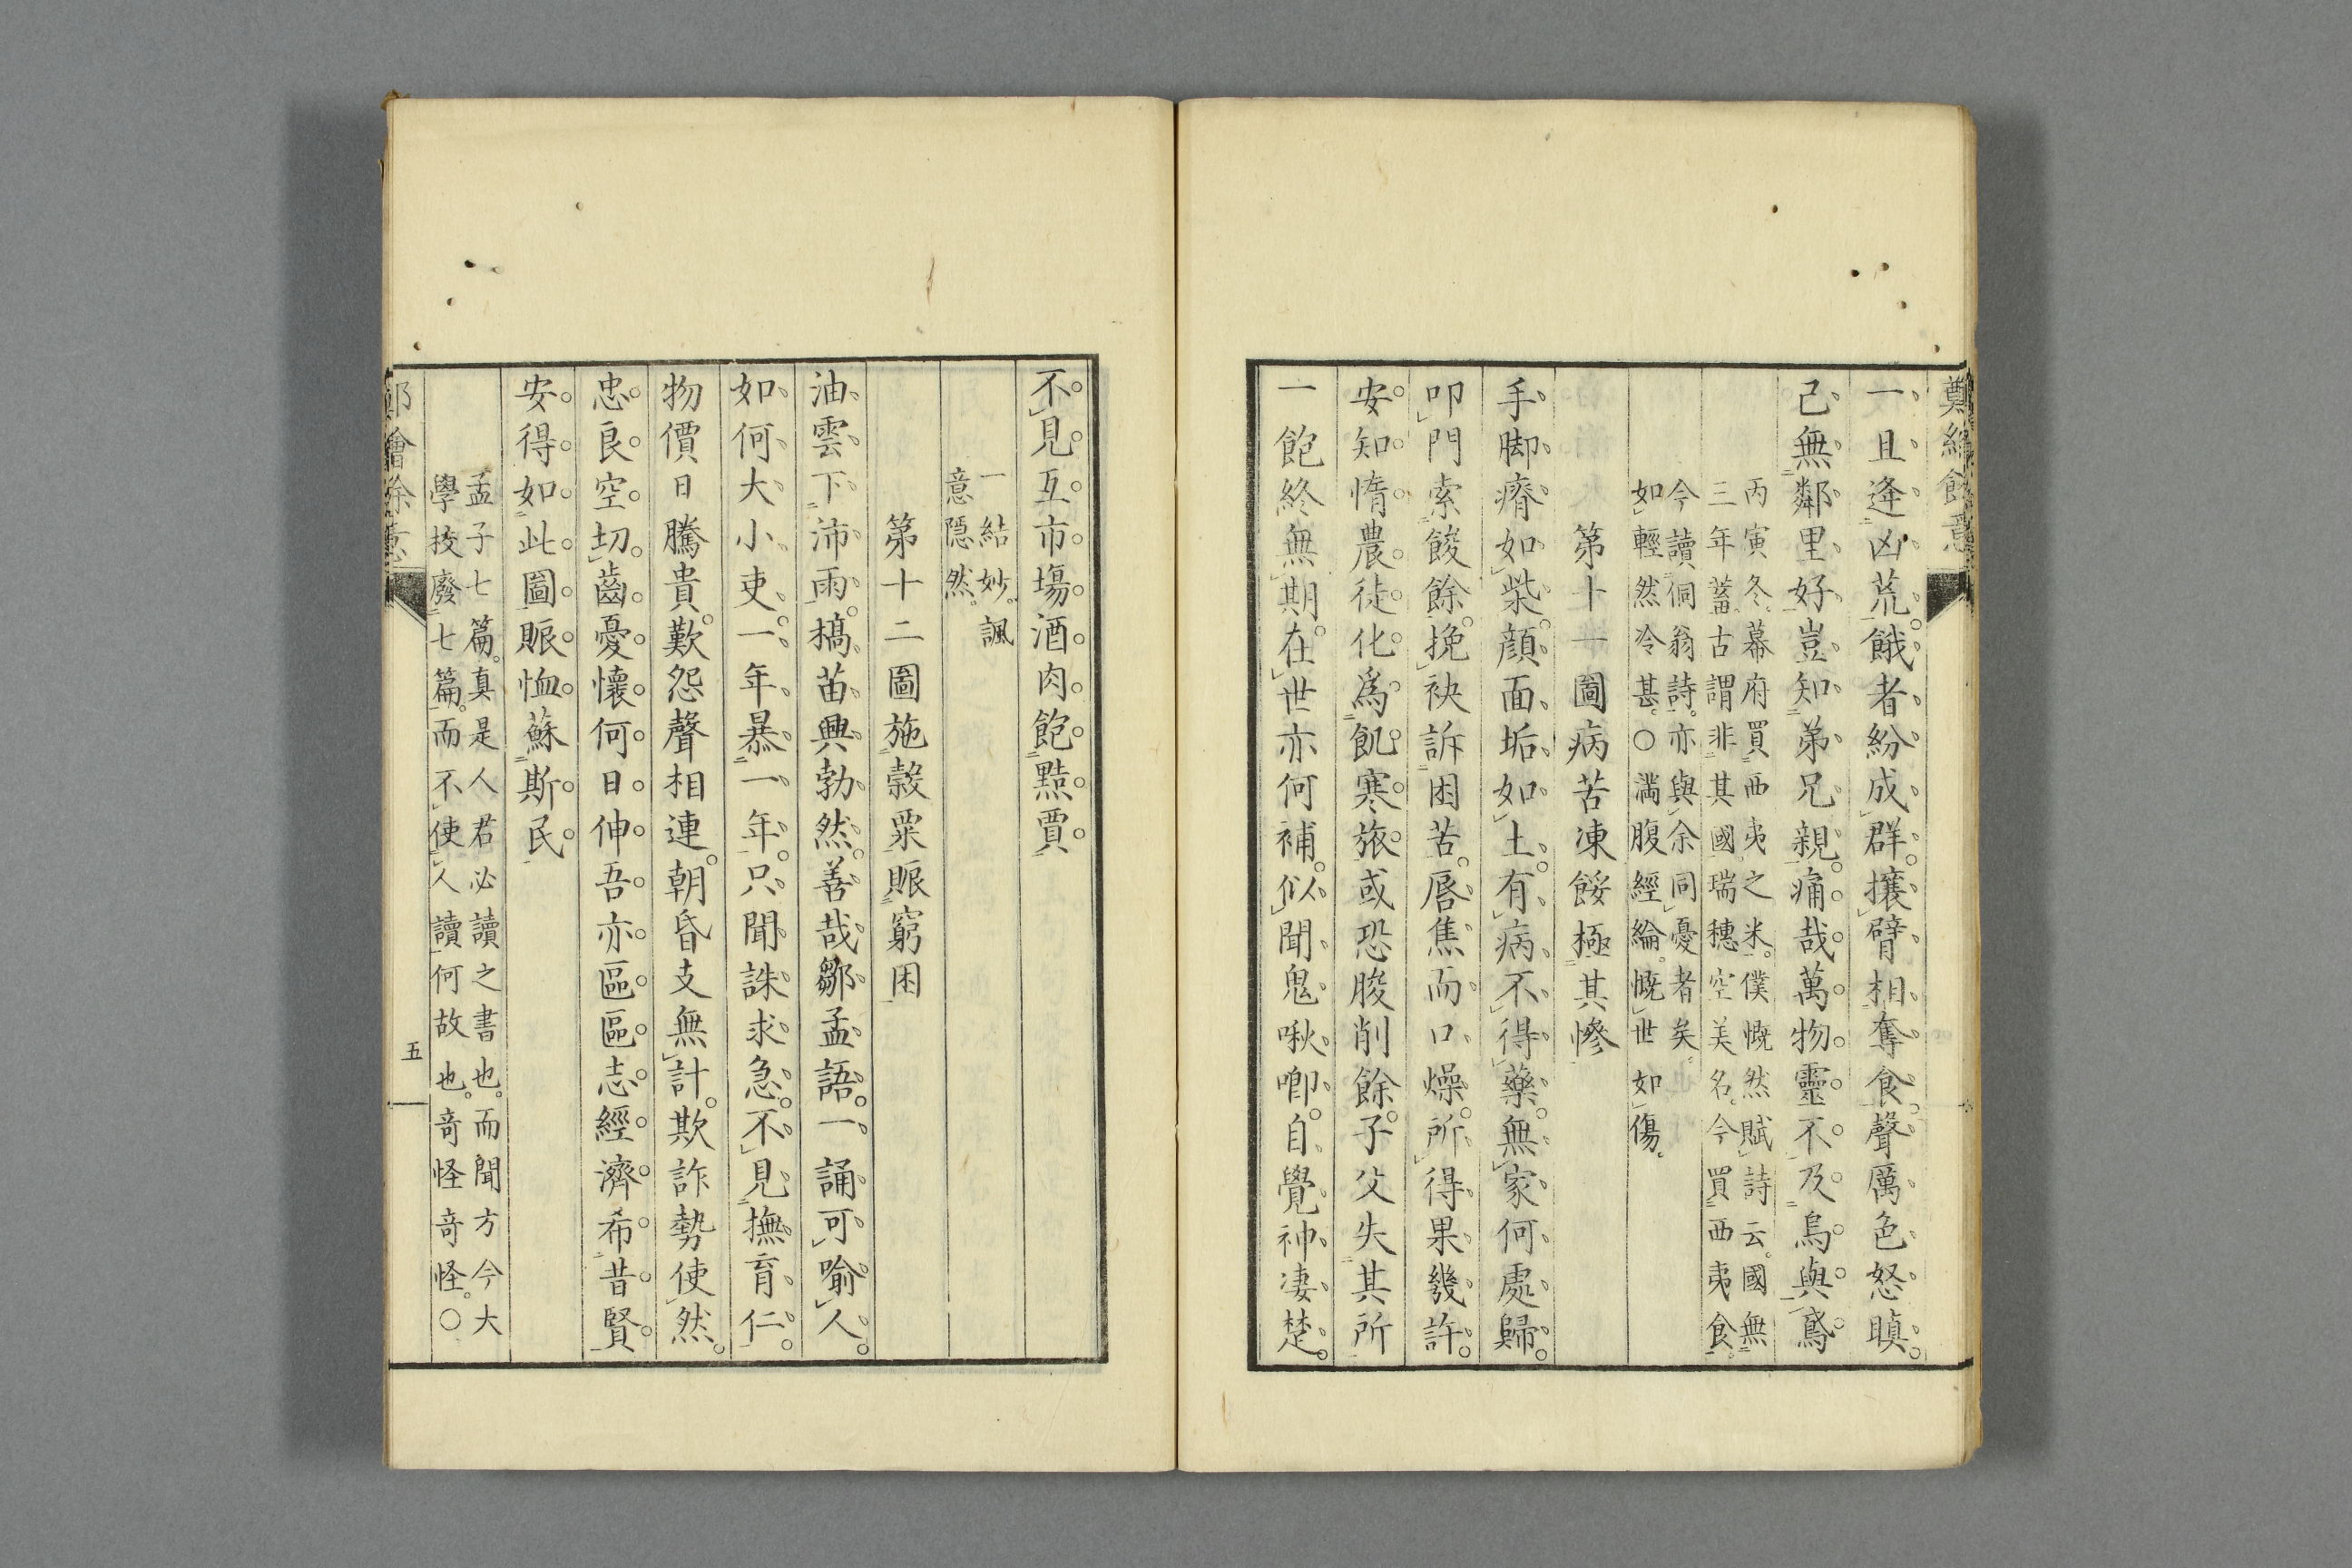 鄭繪餘意
一旦逢凶荒。餓者紛成群。攘臂相奪食。聲厲色怒瞋。
己無鄰里好。豈知弟兄親。痛哉萬物靈。不及烏與鳶
丙寅冬。幕府買西夷之米。僕慨然賦詩云。國無
三年蓄。古謂非其國。瑞穗空美名。今買西夷食。
今讀侗翁詩。亦與余同憂者矣。
如輕然冷甚。○滿腹經綸。慨世如傷。
第十一圖病苦凍餒極其慘
手脚瘠如柴。顔面垢如土。有病不得藥。無家何處歸。
叩門索餕餘。挽袂訴困苦。唇焦而口燥。所得果幾許。
安知惰農徒。化爲飢寒旅。或恐朘削餘。子父失其所
一飽終無期。在世亦何補。似聞鬼啾喞。自覺神凄楚。
不見互市場。酒肉飽黠賈
一結妙。諷
意隱然。
第十二圖施穀粟賑窮困
油雲下沛雨。槁苗興勃然。善哉鄒孟語。一誦可喻人。
如何大小吏。一年暴一年。只聞誅求急。不見撫育仁。
物價日騰貴。歎怨聲相連。朝昏支無計。欺詐勢使然。
忠良空切齒。憂懷何日伸。吾亦區區志。經濟希昔賢。
安得如此圖。賑恤蘇斯民。
孟子七篇。真是人君必讀之書也。而聞方今大
學校廢七篇。而不使人讀。何故也。奇怪奇怪。○
鄭繪餘意
五